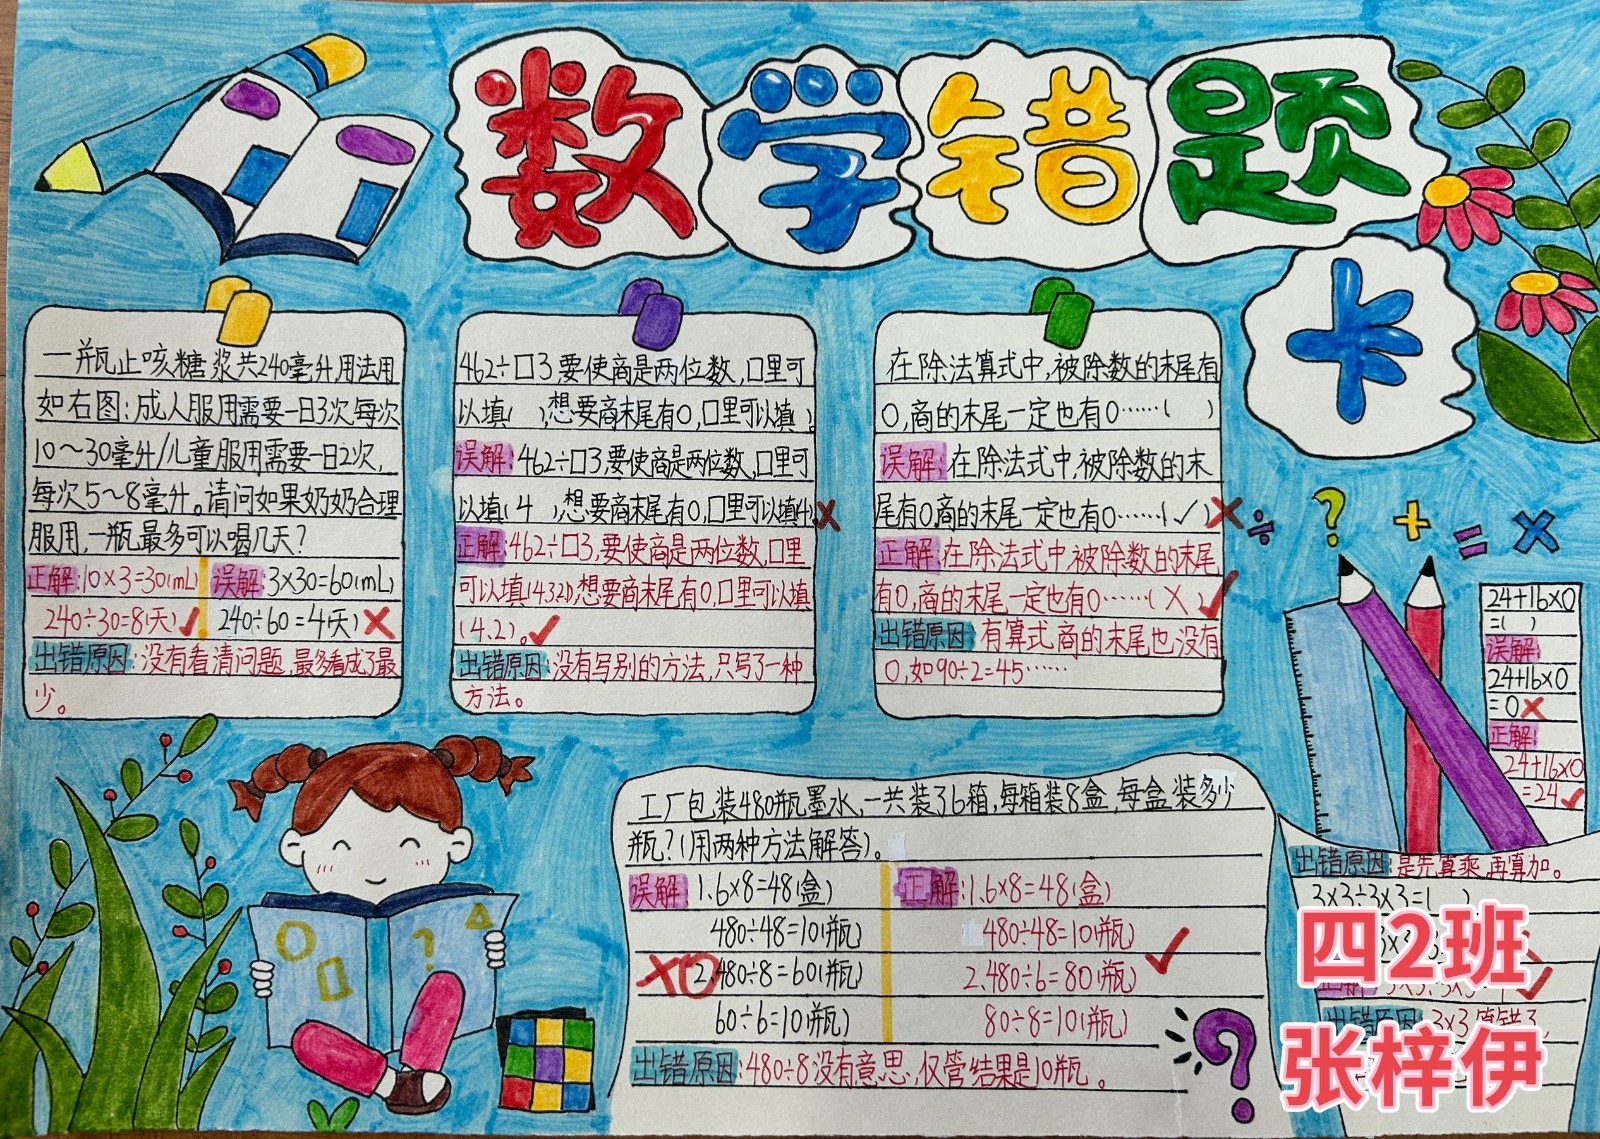 数学错题
卡
一瓶止咳糖浆共240毫升,用法用
如右图:成人服用需要一日3次,每次
10～30毫升/儿童服用需要一日2次,
每次5～8毫升。请问如果奶奶合理
服用,一瓶最多可以喝几天?
正解:10×3=30(mL) 误解:3×30=60(mL)
240÷30=8(天)✓ 240÷60=4(天)×
出错原因:没有看清问题,最多看成了最
少。
462÷口3要使商是两位数,口里可
以填( ),想要商末尾有0,口里可以填( )
误解:462÷口3,要使商是两位数,口里可
以填(4 ),想要商末尾有0,口里可以填(4)×
正解:462÷口3,要使商是两位数,口里
可以填(4.3.2.1),想要商末尾有0,口里可以填
(4.2)。✓
出错原因:没有写别的方法,只写了一种
方法。
在除法算式中,被除数的末尾有
0,商的末尾一定也有0……( )
误解:在除法式中,被除数的末
尾有0,商的末尾一定也有0……(✓)×
正解:在除法式中,被除数的末尾
有0,商的末尾一定也有0……(×)✓
出错原因:有算式,商的末尾也没有
0,如90÷2=45……
÷ ? + = ×
24+16×0
=( )
误解:
24+16×0
=0×
正解:
24+16×0
=24✓
出错原因:是先算乘,再算加。
3×3÷3×3=( )
工厂包装480瓶墨水,一共装了6箱,每箱装8盒,每盒装多少
瓶?(用两种方法解答)。
误解:1.6×8=48(盒) 正解:1.6×8=48(盒)
480÷48=10(瓶) 480÷48=10(瓶)✓
2.480÷8=60(瓶) 2.480÷6=80(瓶)
60÷6=10(瓶) 80÷8=10(瓶)
出错原因:480÷8没有意思,仅管结果是10瓶。
四2班
张梓伊